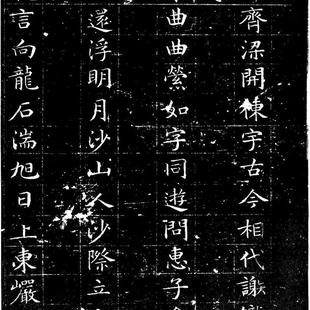 齊梁開棟宇古今相代謝
曲曲縈如字同遊問惠子
遂浮明月沙山人沙際立
言向龍石湍旭日上東巖